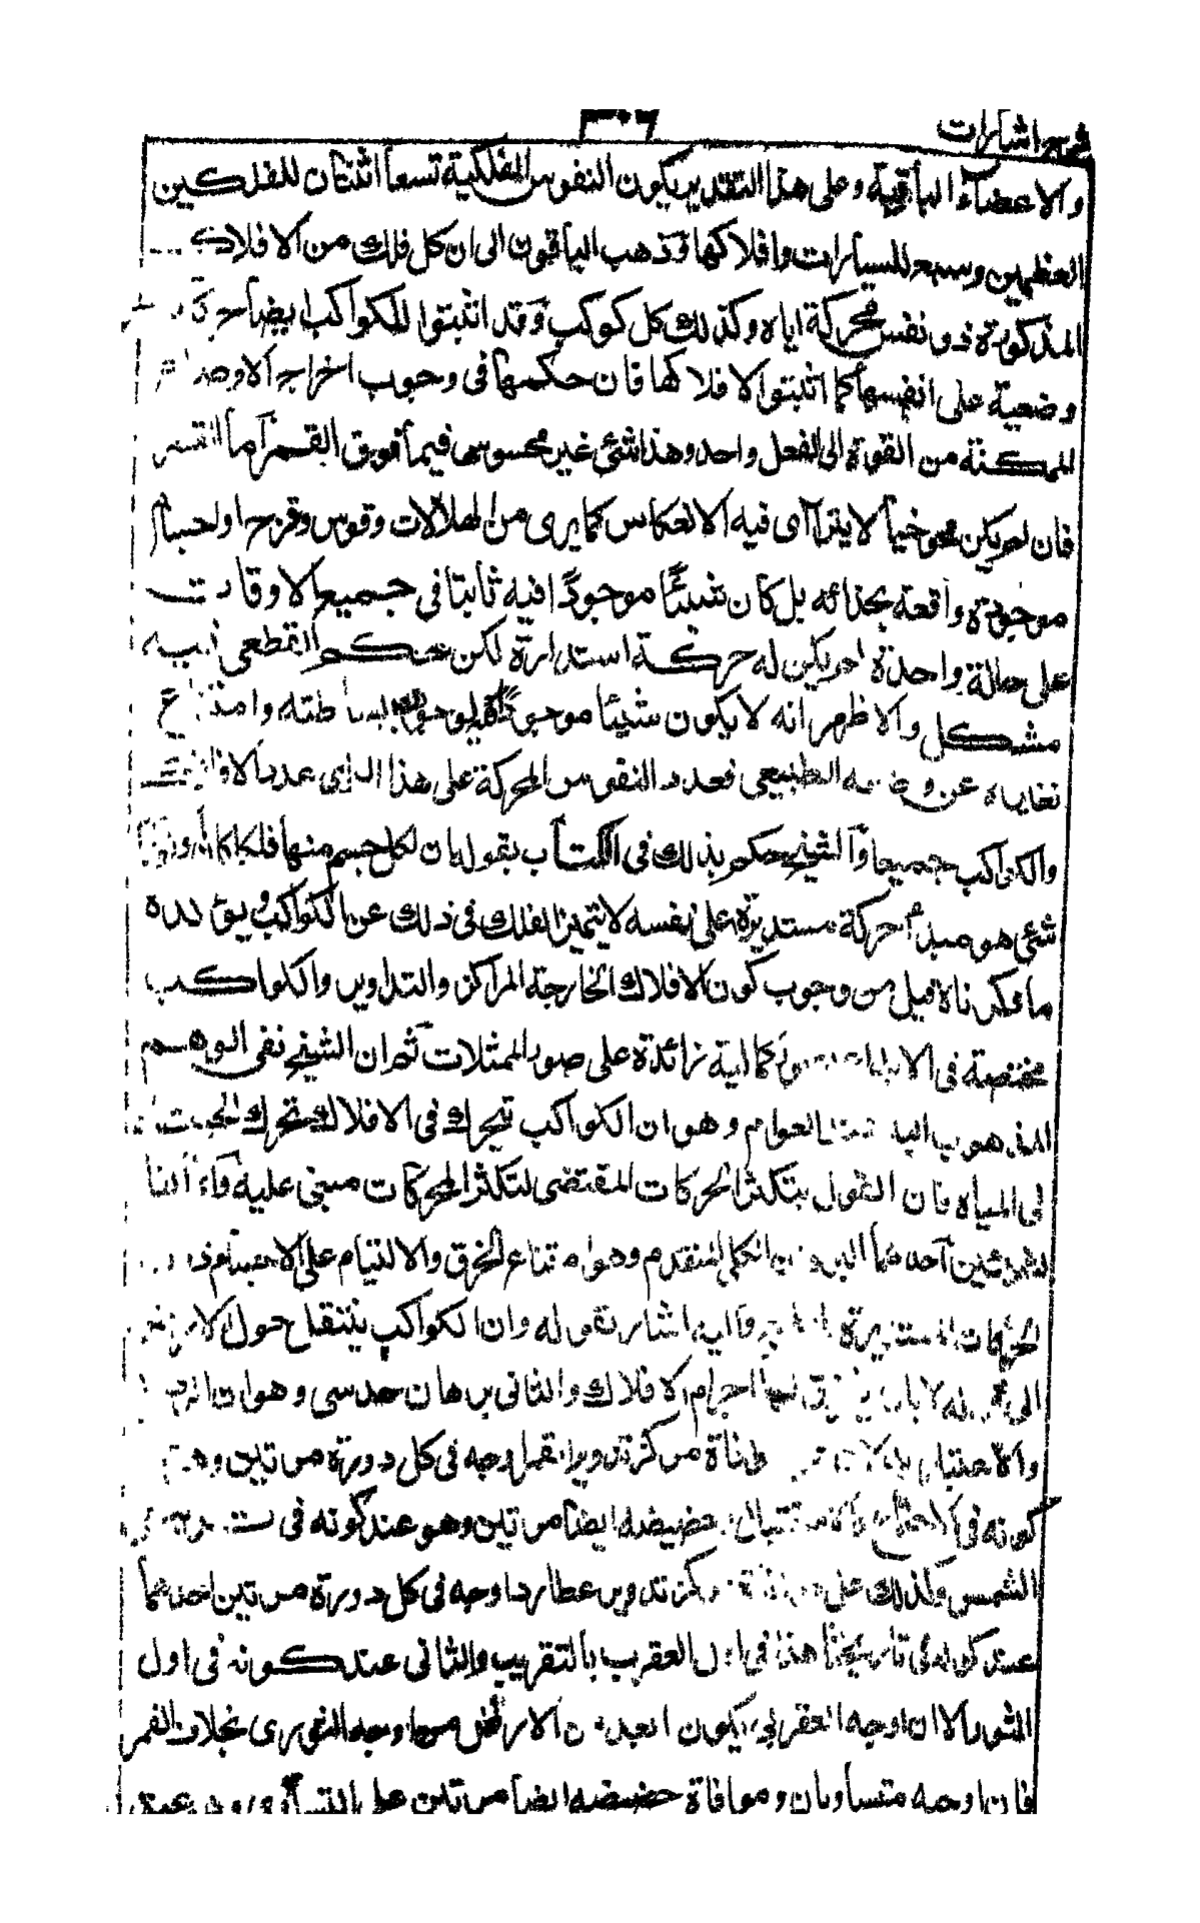 شرح اشارات
٣٠٦
والاعضاء الباقية وعلى هذا التقدير يكون النفوس الفلكية تسعا اثنتان للفلكين
العظيمين وسبع للسيارات وافلاكها وذهب الباقون الى ان كل فلك من الافلاك
المذكورة ذو نفس محركة اياه وكذلك كل كوكب وقد اثبتوا للكواكب ايضا
وضعية على انفسها كما اثبتوا لافلاكها فان حكمها فى وجوب اخراج الاوضاع
الممكنة من القوة الى الفعل واحد وهذا شئ غير محسوس فيما فوق القمر اما القمر
فان لم يكن محوه خيالا يتراآى فيه الانعكاس كما يرى من الهالات وقوس وقزح او اجساما
موجودة واقعة بحذائه بل كان شيئا موجودا فيه ثابتا فى جميع الاوقات
على حالة واحدة لم يكن له حركة استدارة لكن حكم القطعى فيه
مشكل والاظهر انه لا يكون شيئا موجودا فيه لوجوب بساطته وامتناع
تغايره عن وضعه الطبيعى فعدد النفوس المحركة على هذا الراى عدد الافلاك
والكواكب جميعا والشيخ حكم بذلك فى الكتاب بقوله ان لكل جسم منها فلكا كان او كوكبا
شئ هو مبدأ حركة مستديرة على نفسه لا يتميز الفلك فى ذلك عن الكواكب ويؤكده
ما ذكرناه قبل من وجوب كون الافلاك الخارجة المراكز والتداوير والكواكب
مختصة فى كمالية زائدة على صور الممثلات ثم ان الشيخ نفى الوهم
المذهوب اليه العوام وهو ان الكواكب تتحرك فى الافلاك تحرك الحيتان
فى المياه فان القول بتكثر الحركات المقتضى لتكثر المحركات مبنى عليه
بشيئين احدهما البرهان الكلى المتقدم وهو امتناع الخرق والالتيام على الاجسام
الحركات المستديرة واليه اشار بقوله وان الكواكب ينتقل حول الارض
الى لها اجرام الافلاك والثانى برهان حدسى وهو ان
والاعتبار موافاة مركز تدوير القمر اوجه فى كل دورة مرتين وهو
كونه فى الاجتماع والاستقبال حضيضه ايضا مرتين وهو عند كونه فى
الشمس وكذلك على مركز تدوير عطارد اوجه فى كل دورة مرتين احدهما
عند كونه فى تاريخنا هذا فى اول العقرب بالتقريب والثانى عند كونه فى اول
الثور الا ان اوجه العقربى يكون ابعد من الارض من اوجه الثورى بخلاف القمر
فان اوجه متساويان وموافاة حضيضه ايضا مرتين على التساوى